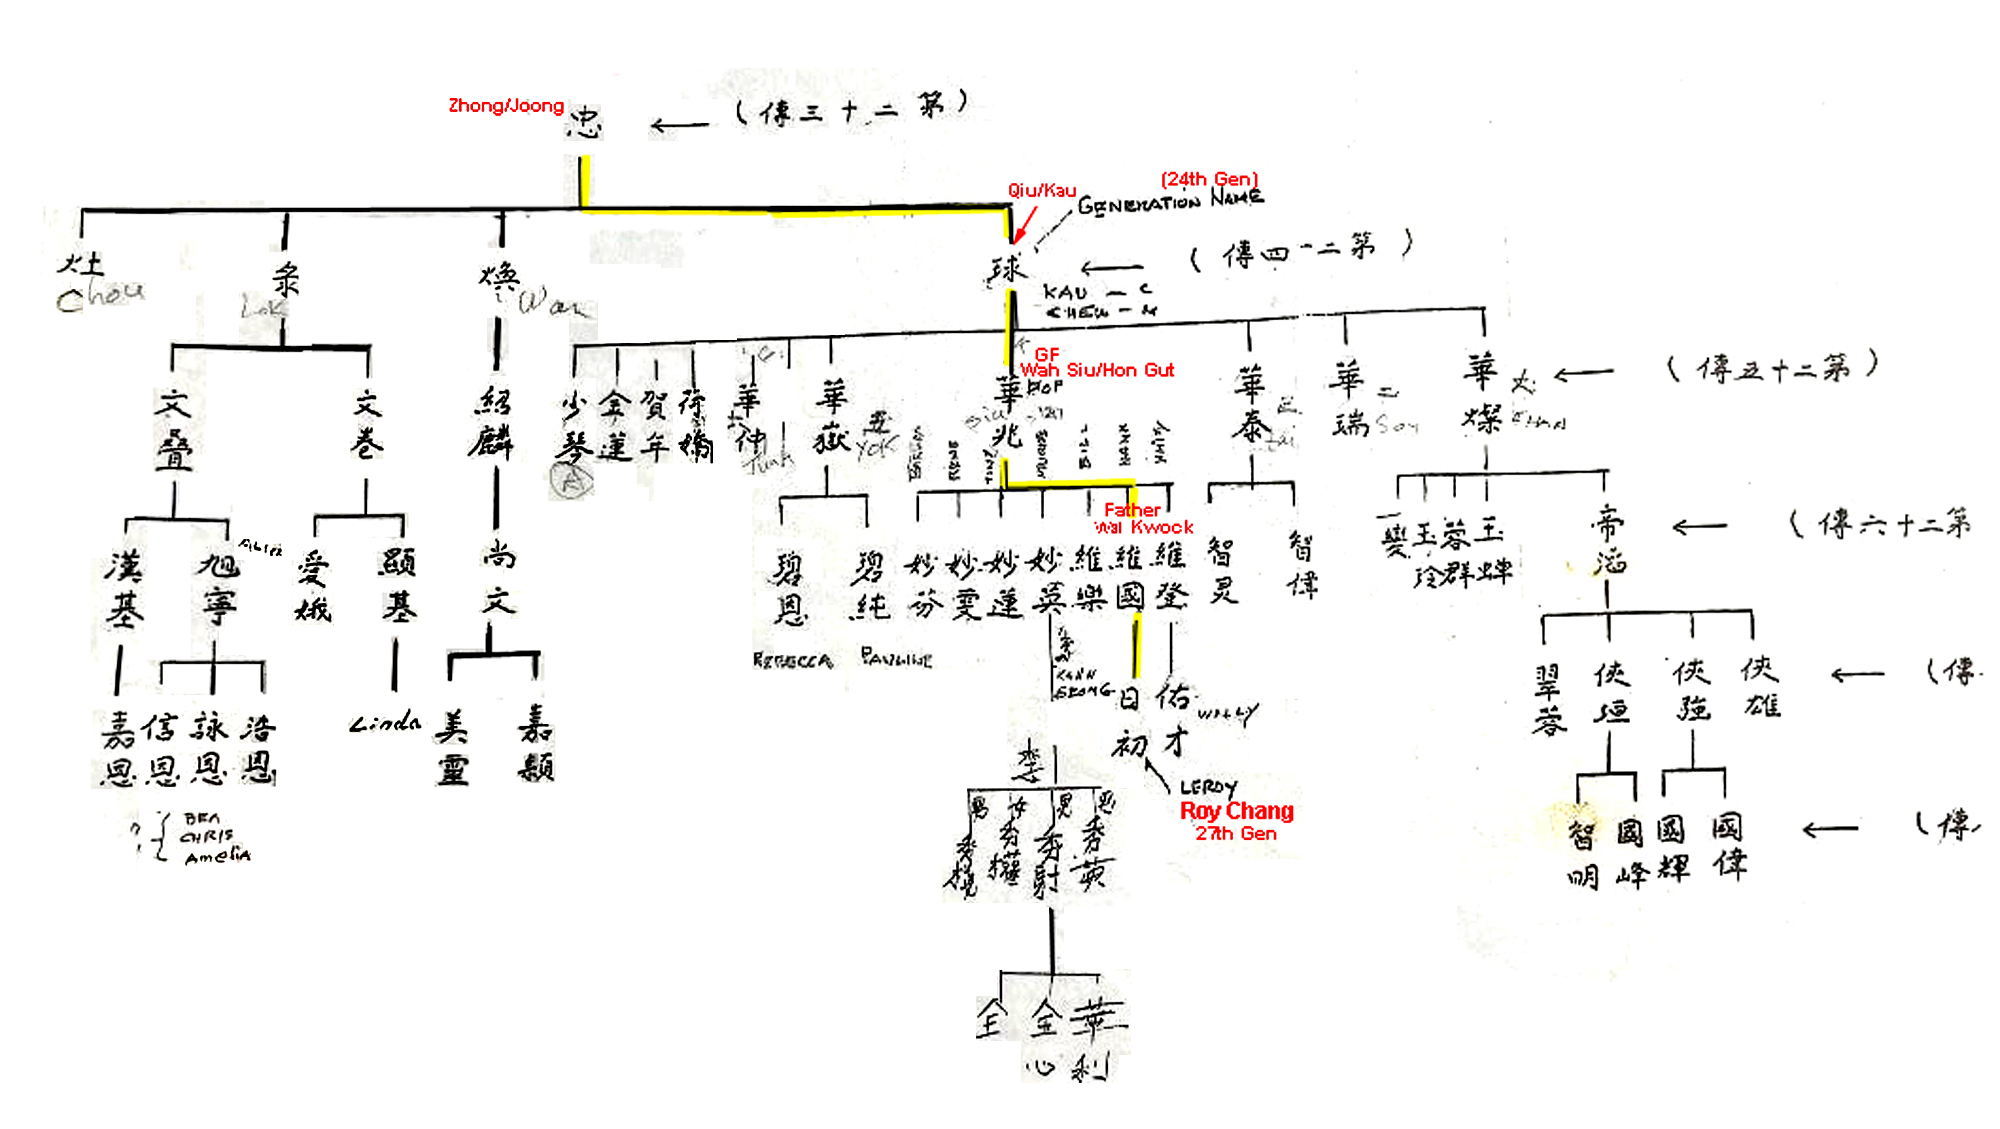 Zhong/Joong
忠
（傳三十二第）
(24th Gen)
Qiu/Kau
GENERATION NAME
灶
Chou
泉
Lok
煥
Wan
球
（傳四十二第）
KAU - C
CHEW - M
GF
Wah Siu/Hon Gut
（傳五十二第）
文疊
文卷
紹麟
少琴
A
金蓮
賀年
華仲
華嶽
五
YOK
華兆
Siu
華泰
三
Tai
華瑞
二
Soy
華燦
大
Father
Wai Kwock
（傳六十二第
漢基
旭寧
愛娥
顯基
尚文
碧恩
碧純
妙芬
妙雯
妙蓮
妙英
維樂
維國
維登
智灵
智偉
玉玲
蓉群
玉嬋
帝滔
REBECCA
PAULINE
嘉恩
信恩
詠恩
浩恩
Linda
美靈
嘉穎
日初
佑才
WALLY
翠蓉
俠垣
俠強
俠雄
（傳
LEROY
Roy Chang
27th Gen
?
BEN
CHRIS
Amelia
李
男
女
男
智明
國峰
國輝
國偉
（傳
全
全心
華利